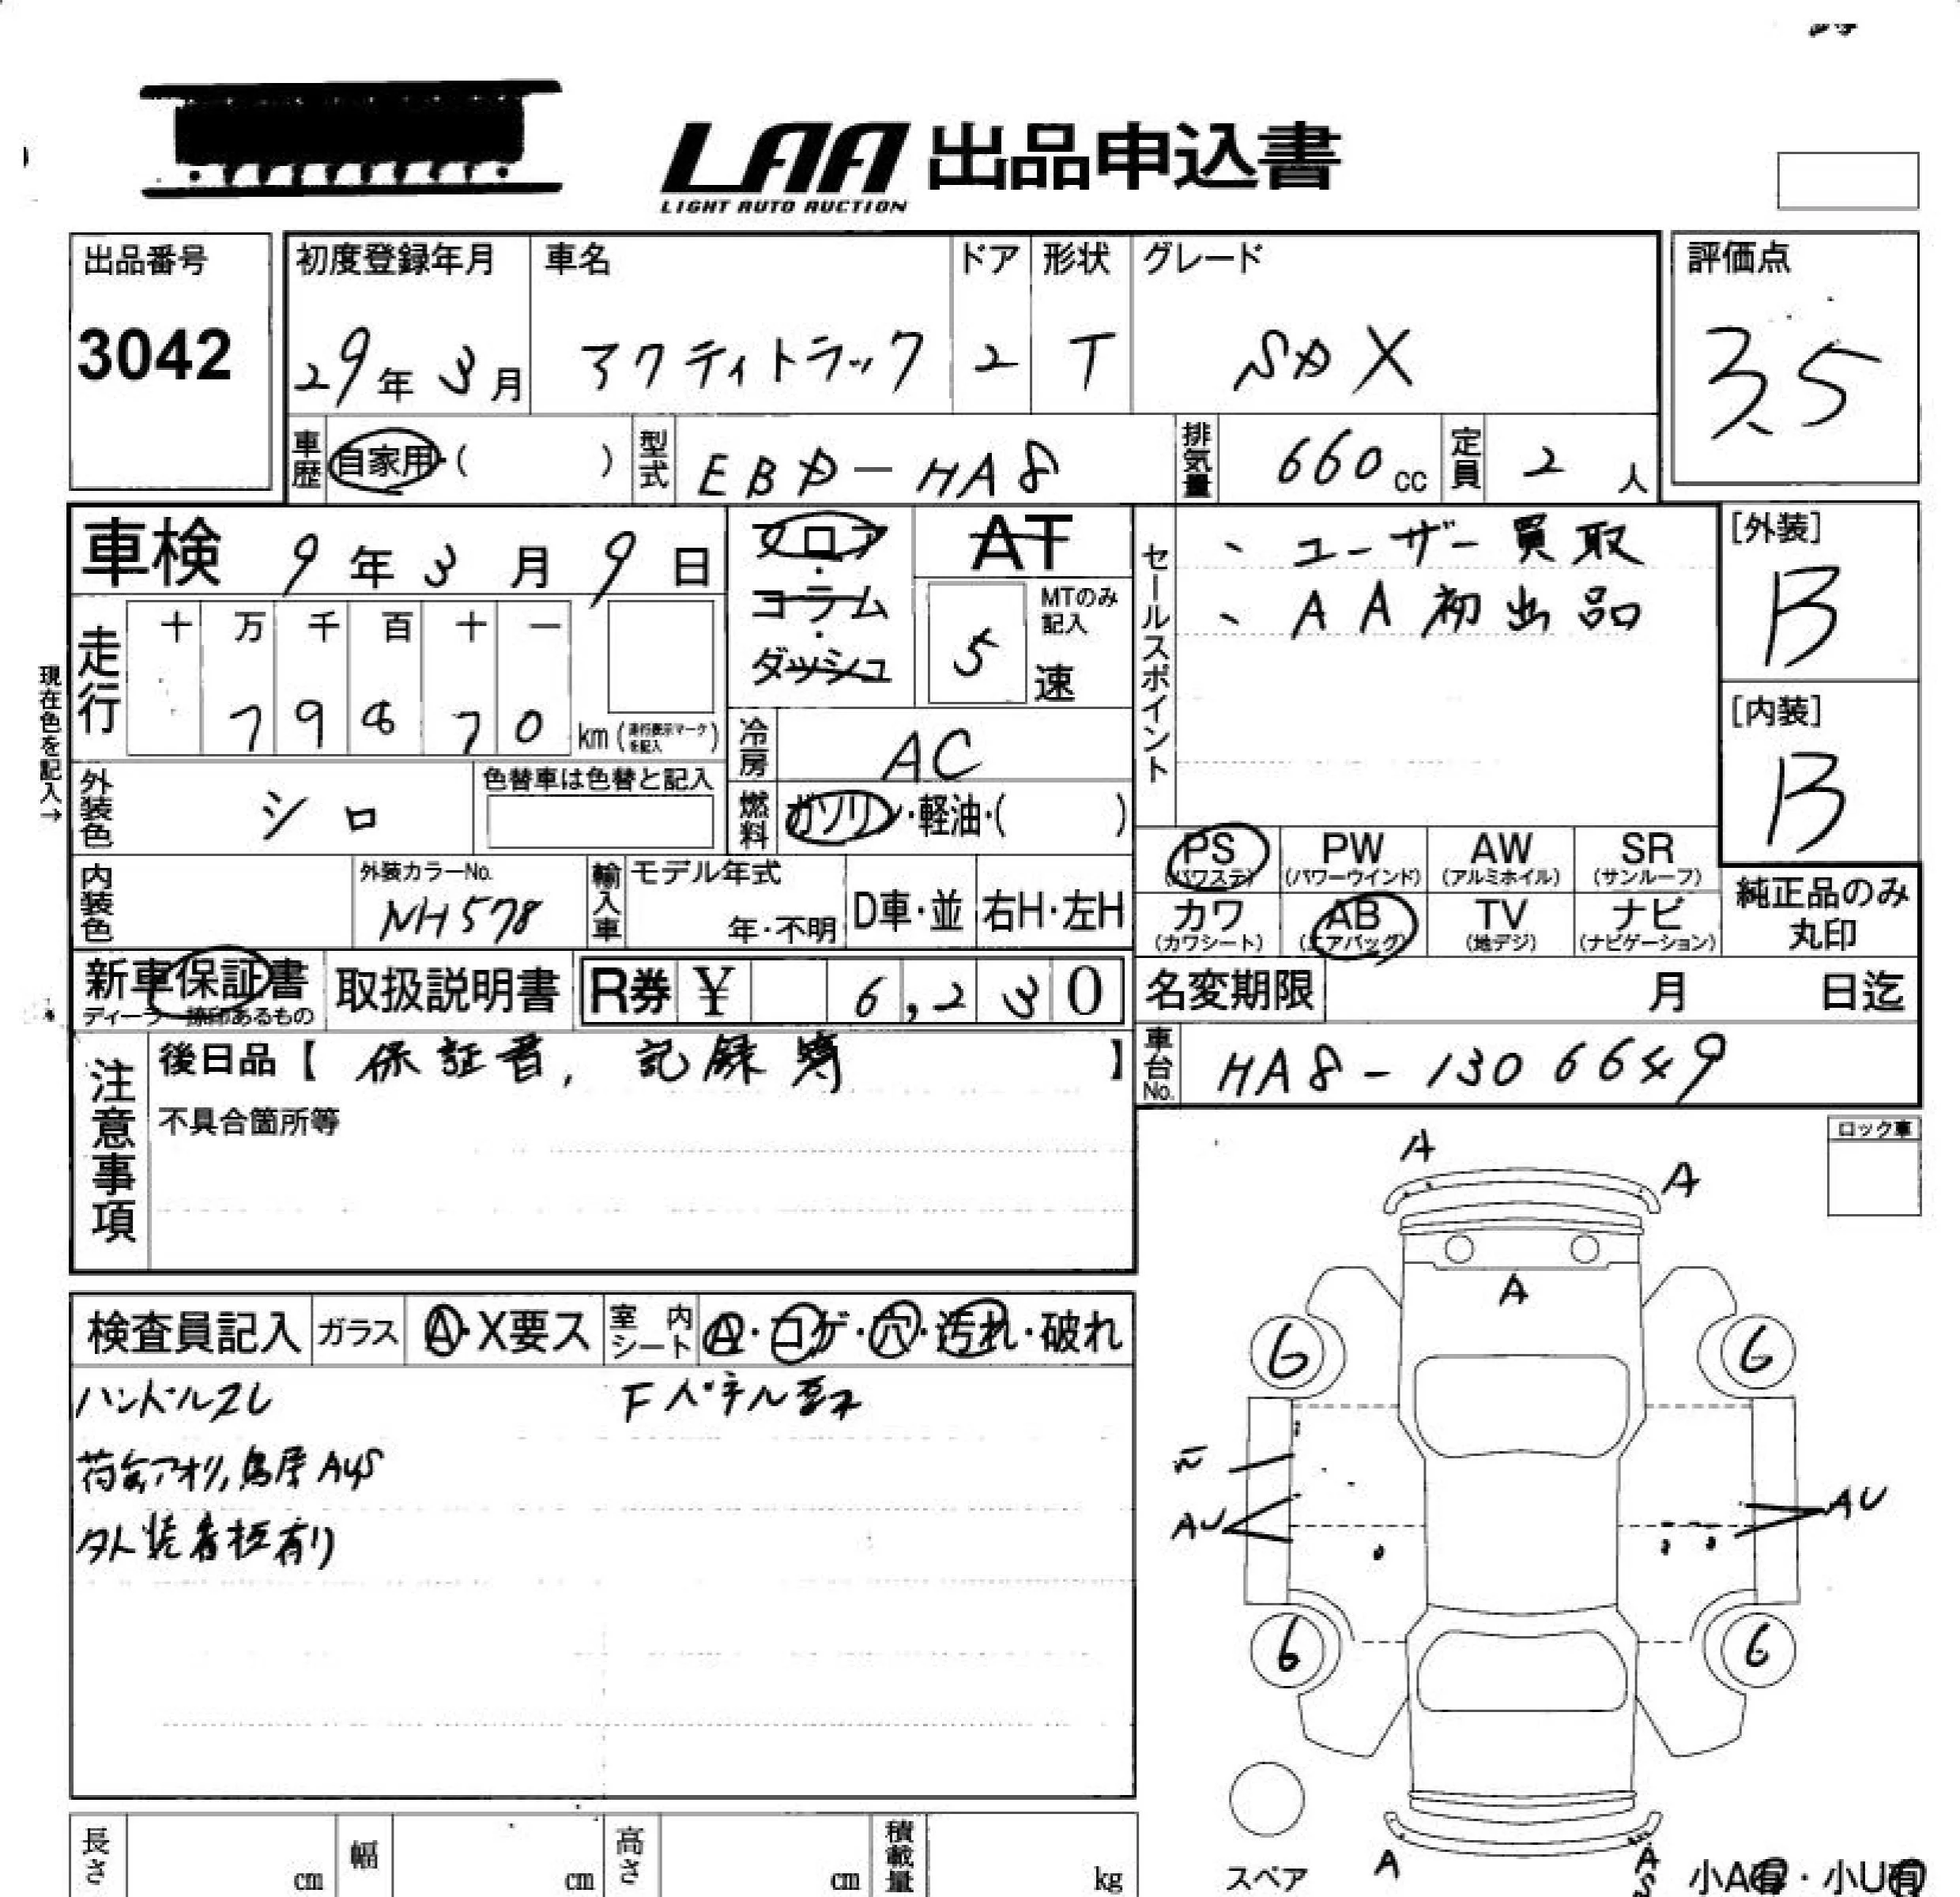 LAA 出品申込書
LIGHT AUTO AUCTION
出品番号
3042
初度登録年月
29年 3月
車名
アクティトラック
ドア
2
形状
T
グレード
SDX
評価点
3.5
車歴
自家用・( )
型式
EBD-HA8
排気量
660cc
定員
2人
車検 9年 3月 9日
走行
十 万 千 百 十 一
7 9 8 7 0
km
現在色を記入→
フロア・コラム・ダッシュ
AT
MTのみ記入
5速
冷房
AC
燃料
ガソリン・軽油・( )
外装色
シロ
色替車は色替と記入
内装色
外装カラーNo.
NH578
輸入車
モデル年式
年・不明
D車・並
右H・左H
セールスポイント
、ユーザー買取
、AA初出品
[外装]
B
[内装]
B
PS
(パワステ)
PW
(パワーウインド)
AW
(アルミホイル)
SR
(サンルーフ)
カワ
(カワシート)
AB
(エアバッグ)
TV
(地デジ)
ナビ
(ナビゲーション)
純正品のみ
丸印
新車保証書
ディーラー捺印あるもの
取扱説明書
R券 ¥ 6,230
名変期限 月 日迄
車台No.
HA8-1306649
注意事項
後日品【 保証書, 記録簿 】
不具合箇所等
ロック車
検査員記入
ガラス
A・X要ス
室内シート
A・コゲ・穴・汚れ・破れ
ハンドルスレ
荷台アオリ,鳥居AUS
外装看板有り
A
A
A
6
6
AU
AU
6
6
スペア
A
A
S
小A有・小U有
長さ
cm
幅
cm
高さ
cm
積載量
kg